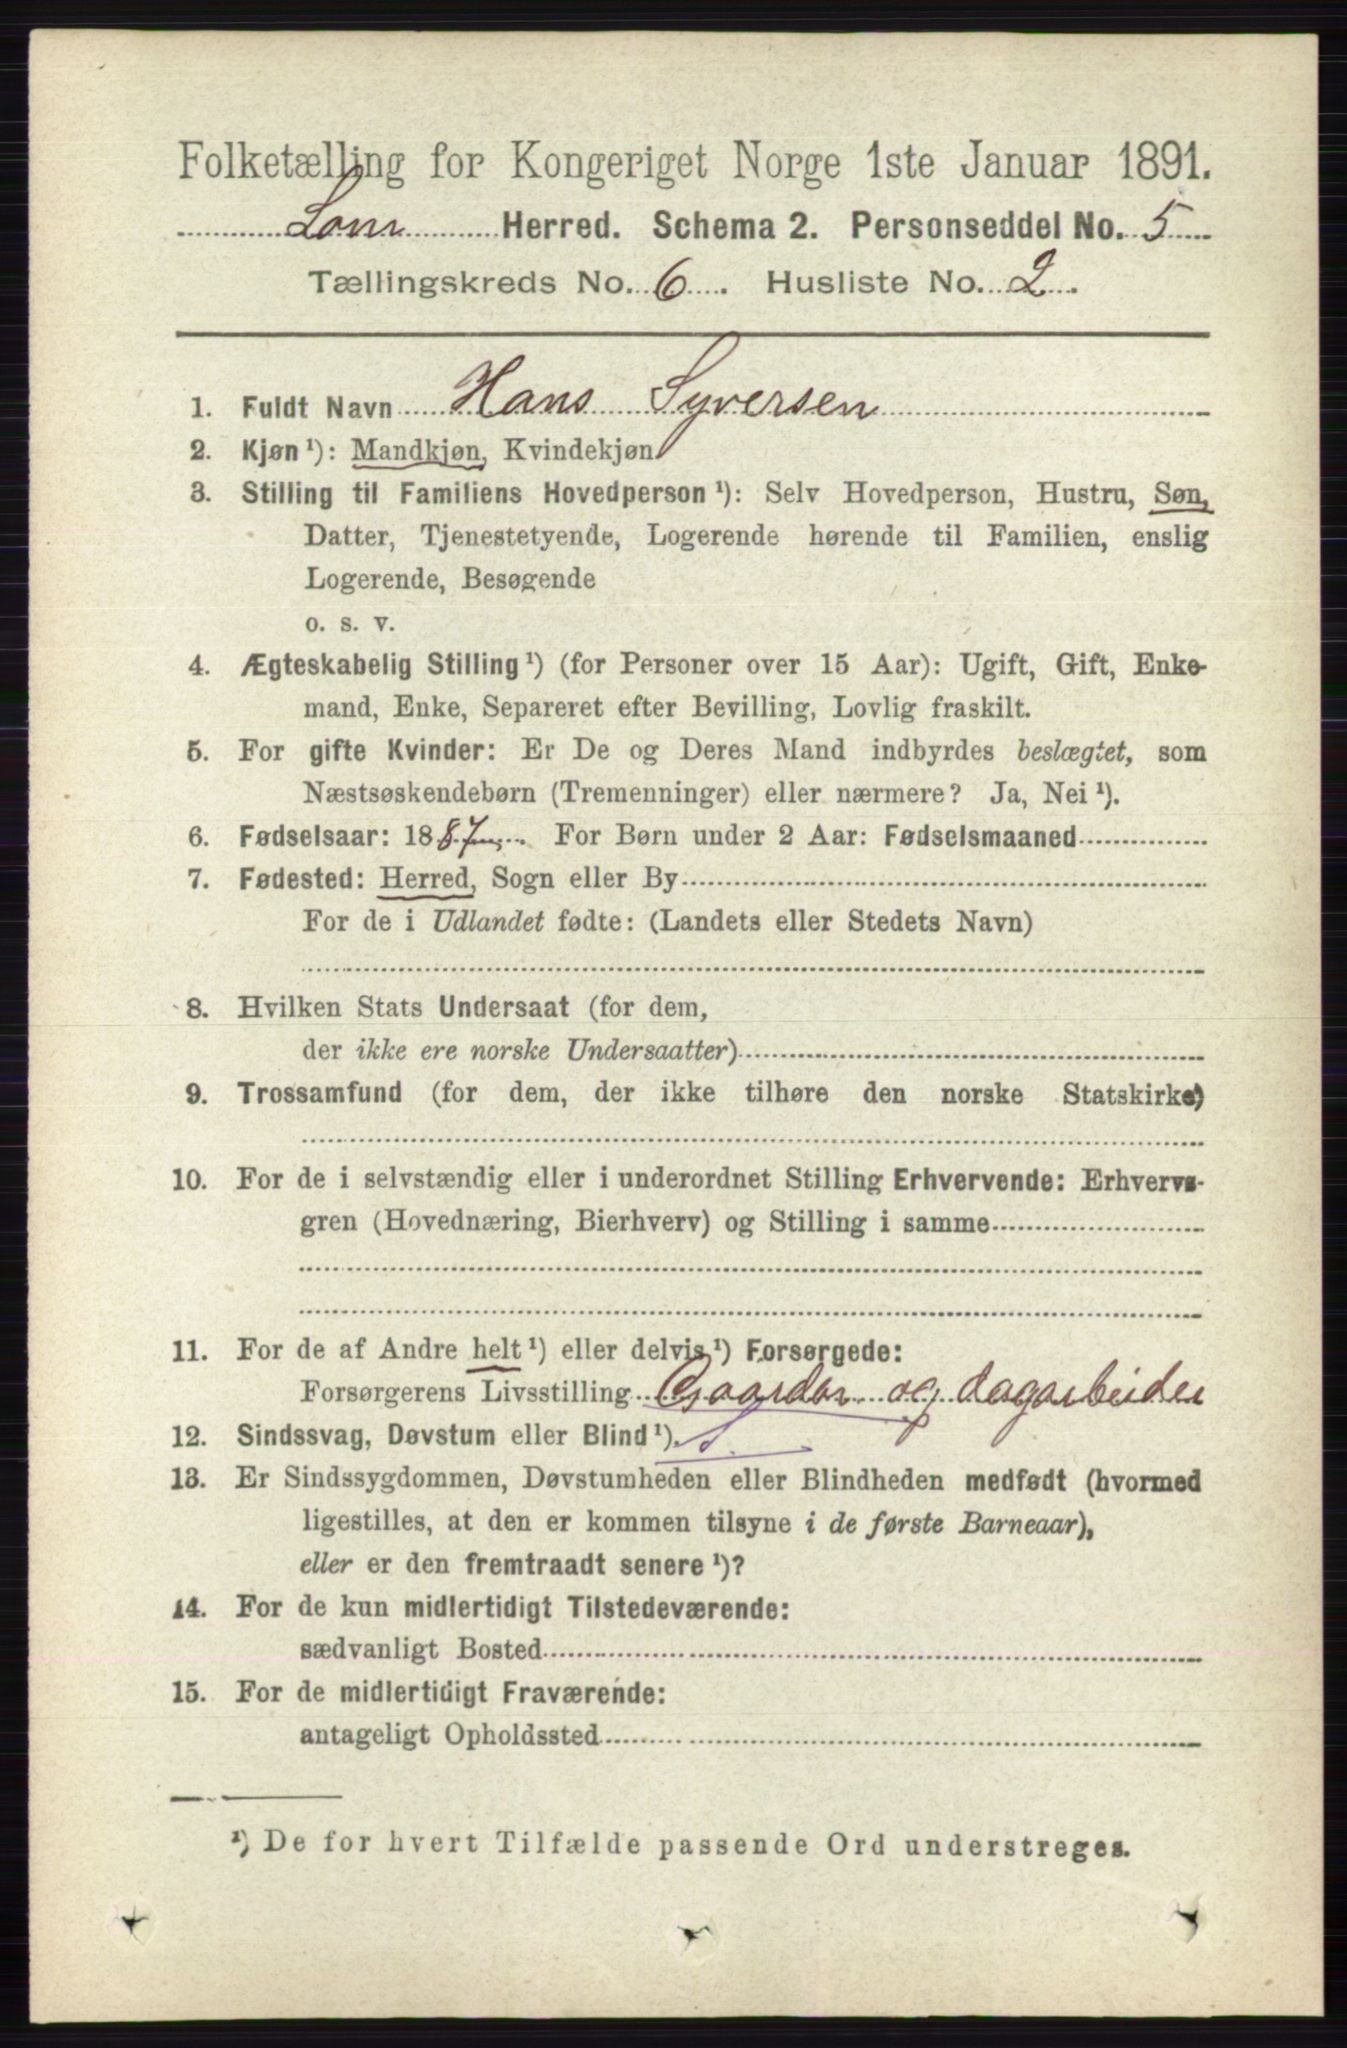 Folketælling for Kongeriget Norge 1ste Januar 1891.
Lom Herred. Schema 2. Personseddel No. 5
Tællingskreds No. 6. Husliste No. 2.
1. Fuldt Navn Hans Syversen
2. Kjøn ¹): Mandkjøn, Kvindekjøn
3. Stilling til Familiens Hovedperson ¹): Selv Hovedperson, Hustru, Søn,
Datter, Tjenestetyende, Logerende hørende til Familien, enslig
Logerende, Besøgende
o. s. v.
4. Ægteskabelig Stilling ¹) (for Personer over 15 Aar): Ugift, Gift, Enke-
mand, Enke, Separeret efter Bevilling, Lovlig fraskilt.
5. For gifte Kvinder: Er De og Deres Mand indbyrdes beslægtet, som
Næstsøskendebørn (Tremenninger) eller nærmere? Ja, Nei ¹).
6. Fødselsaar: 1887 For Børn under 2 Aar: Fødselsmaaned
7. Fødested: Herred, Sogn eller By
For de i Udlandet fødte: (Landets eller Stedets Navn)
8. Hvilken Stats Undersaat (for dem,
der ikke ere norske Undersaatter)
9. Trossamfund (for dem, der ikke tilhøre den norske Statskirke)
10. For de i selvstændig eller i underordnet Stilling Erhvervende: Erhvervs-
gren (Hovednæring, Bierhverv) og Stilling i samme
11. For de af Andre helt ¹) eller delvis ¹) Forsørgede:
Forsørgerens Livsstilling og dagarbeider
12. Sindssvag, Døvstum eller Blind ¹).
13. Er Sindssygdommen, Døvstumheden eller Blindheden medfødt (hvormed
ligestilles, at den er kommen tilsyne i de første Barneaar),
eller er den fremtraadt senere ¹)?
14. For de kun midlertidigt Tilstedeværende:
sædvanligt Bosted
15. For de midlertidigt Fraværende:
antageligt Opholdssted
¹) De for hvert Tilfælde passende Ord understreges.